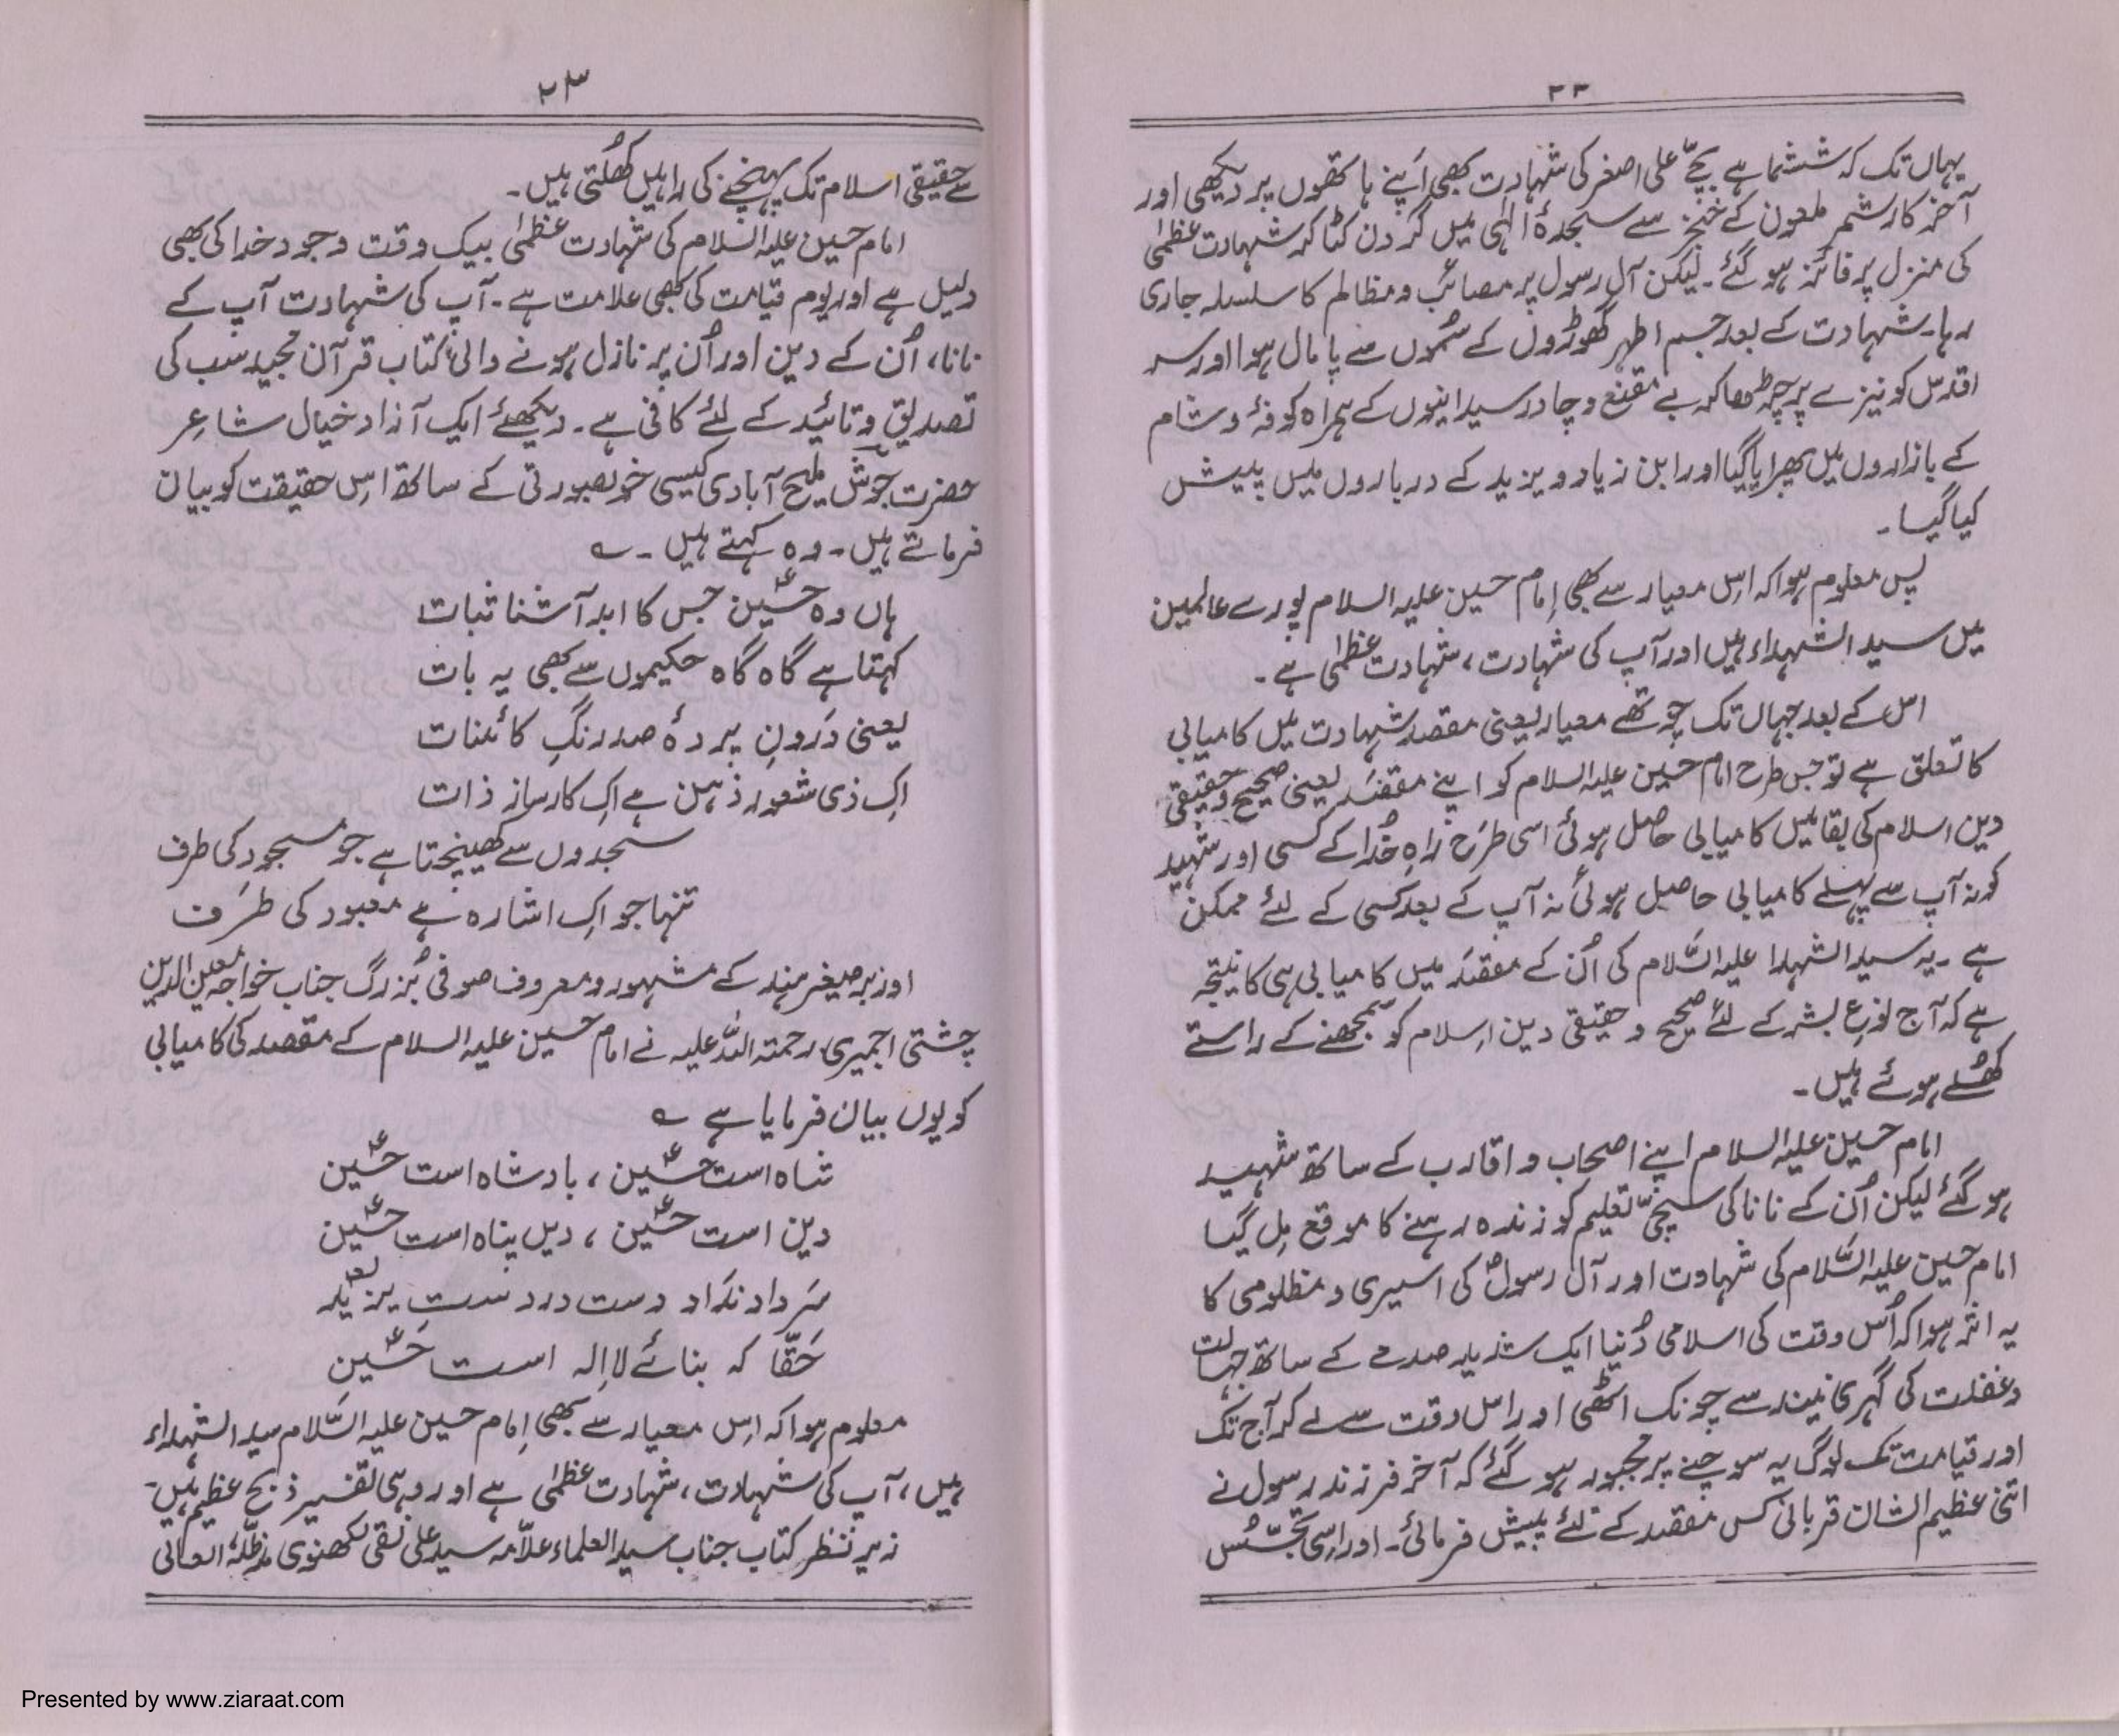 ۲۳
یہاں تک کہ ششماہے بچّے علی اصغر کی شہادت بھی اپنے ہاتھوں پر دیکھی اور
آخر کار شمر ملعون کے خنجر سے سجدۂ الٰہی میں گردن کٹا کر شہادت عظمیٰ
کی منزل پر فائز ہو گئے۔ لیکن آل رسول پر مصائب و مظالم کا سلسلہ جاری
رہا۔ شہادت کے بعد جسم اطہر گھوڑوں کے سُموں سے پامال ہوا اور سر
اقدس کو نیزے پر چڑھا کر بے مقنع و چادر سیدانیوں کے ہمراہ کوفہ و شام
کے بازاروں میں پھرایا گیا اور ابن زیاد و یزید کے درباروں میں پیش
کیا گیا۔
پس معلوم ہوا کہ اس معیار سے بھی اِمام حسین علیہ السلام پورے عالمین
میں سید الشہداء ہیں اور آپ کی شہادت، شہادت عظمیٰ ہے۔
اس کے بعد جہاں تک چوتھے معیار یعنی مقصد شہادت میں کامیابی
کا تعلق ہے تو جس طرح امام حسین علیہ السلام کو اپنے مقصد یعنی صحیح و حقیقی
دین اسلام کی بقا میں کامیابی حاصل ہوئی اسی طرح راہِ خُدا کے کسی اور شہید
کو نہ آپ سے پہلے کامیابی حاصل ہوئی نہ آپ کے بعد کسی کے لئے ممکن
ہے۔ یہ سید الشہدا علیہ السَّلام کی اُن کے مقصد میں کامیابی ہی کا نتیجہ
ہے کہ آج نوعِ بشر کے لئے صحیح و حقیقی دین اسلام کو سمجھنے کے راستے
کھُلے ہوئے ہیں۔
امام حسین علیہ السلام اپنے اصحاب و اقارب کے ساتھ شہید
ہو گئے لیکن اُن کے نانا کی سچّی تعلیم کو زندہ رہنے کا موقع مِل گیا
امام حسین علیہ السَّلام کی شہادت اور آل رسولؐ کی اسیری و مظلومی کا
یہ اثر ہوا کہ اُس وقت کی اسلامی دُنیا ایک شدید صدمے کے ساتھ جہالت
و غفلت کی گہری نیند سے چونک اٹھی اور اس وقت سے لے کر آج تک
اور قیامت تک لوگ یہ سوچنے پر مجبور ہو گئے کہ آخر فرزند رسول نے
اتنی عظیم الشان قربانی کس مقصد کے لئے پیش فرمائی۔ اور اسی تجسّس
۲۴
سے حقیقی اسلام تک پہنچنے کی راہیں کھُلتی ہیں۔
امام حسین علیہ السلام کی شہادت عظمیٰ بیک وقت وجود خدا کی بھی
دلیل ہے اور یوم قیامت کی بھی علامت ہے۔ آپ کی شہادت آپ کے
نانا، اُن کے دین اور اُن پر نازل ہونے والی کتاب قرآن مجید سب کی
تصدیق و تائید کے لئے کافی ہے۔ دیکھئے ایک آزاد خیال شاعر
حضرت جوشؔ ملیح آبادی کیسی خوبصورتی کے ساتھ اس حقیقت کو بیان
فرماتے ہیں۔ وہ کہتے ہیں۔ ؎
ہاں وہ حسینؑ جس کا ابد آشنا ثبات
کہتا ہے گاہ گاہ حکیموں سے بھی یہ بات
یعنی دَرونِ پردۂ صد رنگِ کائنات
اِک ذی شعور ذہن ہے اِک کارساز ذات
سجدوں سے کھینچتا ہے جو مسجود کی طرف
تنہا جو اِک اشارہ ہے معبود کی طرَف
اور برصغیر ہند کے مشہور و معروف صوفی بُزرگ جناب خواجہ معین الدین
چشتی اجمیری رحمتہ اللہ علیہ نے امام حسین علیہ السلام کے مقصد کی کامیابی
کو یوں بیان فرمایا ہے ؎
شاہ است حسینؑ ، بادشاہ است حسینؑ
دین است حسینؑ ، دیں پناہ است حسینؑ
سَر داد نداد دست در دستِ یزید
حَقّا کہ بنائے لا الہ است حسینؑ
معلوم ہوا کہ اِس معیار سے بھی اِمام حسین علیہ السَّلام سید الشہداء
ہیں، آپ کی شہادت، شہادت عظمیٰ ہے اور وہی تفسیر ذبح عظیم ہیں۔
زیر نظر کتاب جناب سید العلماء علاّمہ سید علی نقی لکھنوی مدظلّہٗ العالی
Presented by www.ziaraat.com